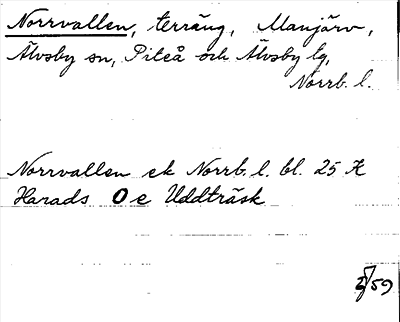 Norrvallen, terräng, Manjärv,
Älvsby sn, Piteå och Älvsby lg,
Norrb. l.
Norrvallen ek Norrb. l. bl. 25 K
Harads O e Uddträsk
2/5 59